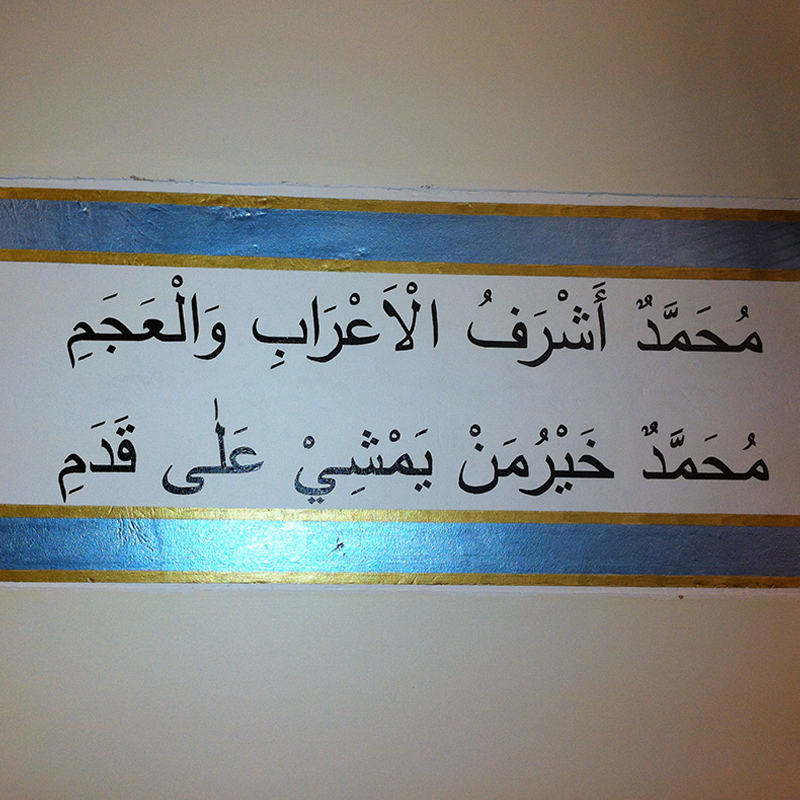 مُحَمَّدٌ أَشْرَفُ الْاَعْرَابِ وَالْعَجَمِ
مُحَمَّدٌ خَيْرُمَنْ يَمْشِيْ عَلٰى قَدَمِ